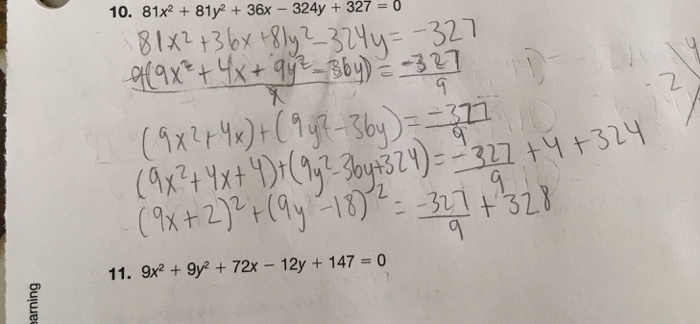 10. 81x² + 81y² + 36x − 324y + 327 = 0
81x²+36x+81y²-324y=-327
9(9x²+4x+9y²-36y)=-327
9 9
(9x²+4x)+(9y²-36y)=-327/9
(9x²+4x+4)+(9y²-36y+324)=-327/9+4+324
(9x+2)²+(9y-18)²=-327/9+328
11. 9x² + 9y² + 72x − 12y + 147 = 0
earning